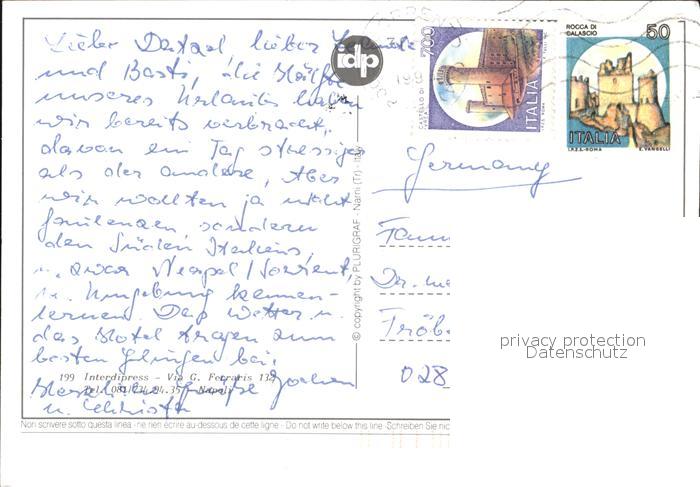 Lieber Detlef, lieber
und Basti, die Hälfte
unseres Urlaubs haben
wir bereits verbracht,
davon ein Tag stressiger
als der andere, Aber
wir wollten ja nicht
faulenzen, sondern
den Süden Italiens,
u. zwar Neapel/Sorrent,
u. Umgebung kennen-
lernen. Das Wetter u.
das Hotel tragen zum
besten Gelingen bei.
199 Interdipress - Via G. Ferraris 132
Herzliche Grüße Jochen
Tel. 081/ - Napoli
u. Christa
Non scrivere sotto questa linea - ne rien écrire au-dessous de cette ligne - Do not write below this line - Schreiben Sie nic
idp
© copyright by PLURIGRAF - Narni (Tr) - Italy
700
CASTELLO DI
ITALIA
ROCCA DI
CALASCIO
50
ITALIA
I.P.Z.S.-ROMA
E. VANGELLI
Germany
Fam
Dr.
Fröb
028
privacy protection
Datenschutz